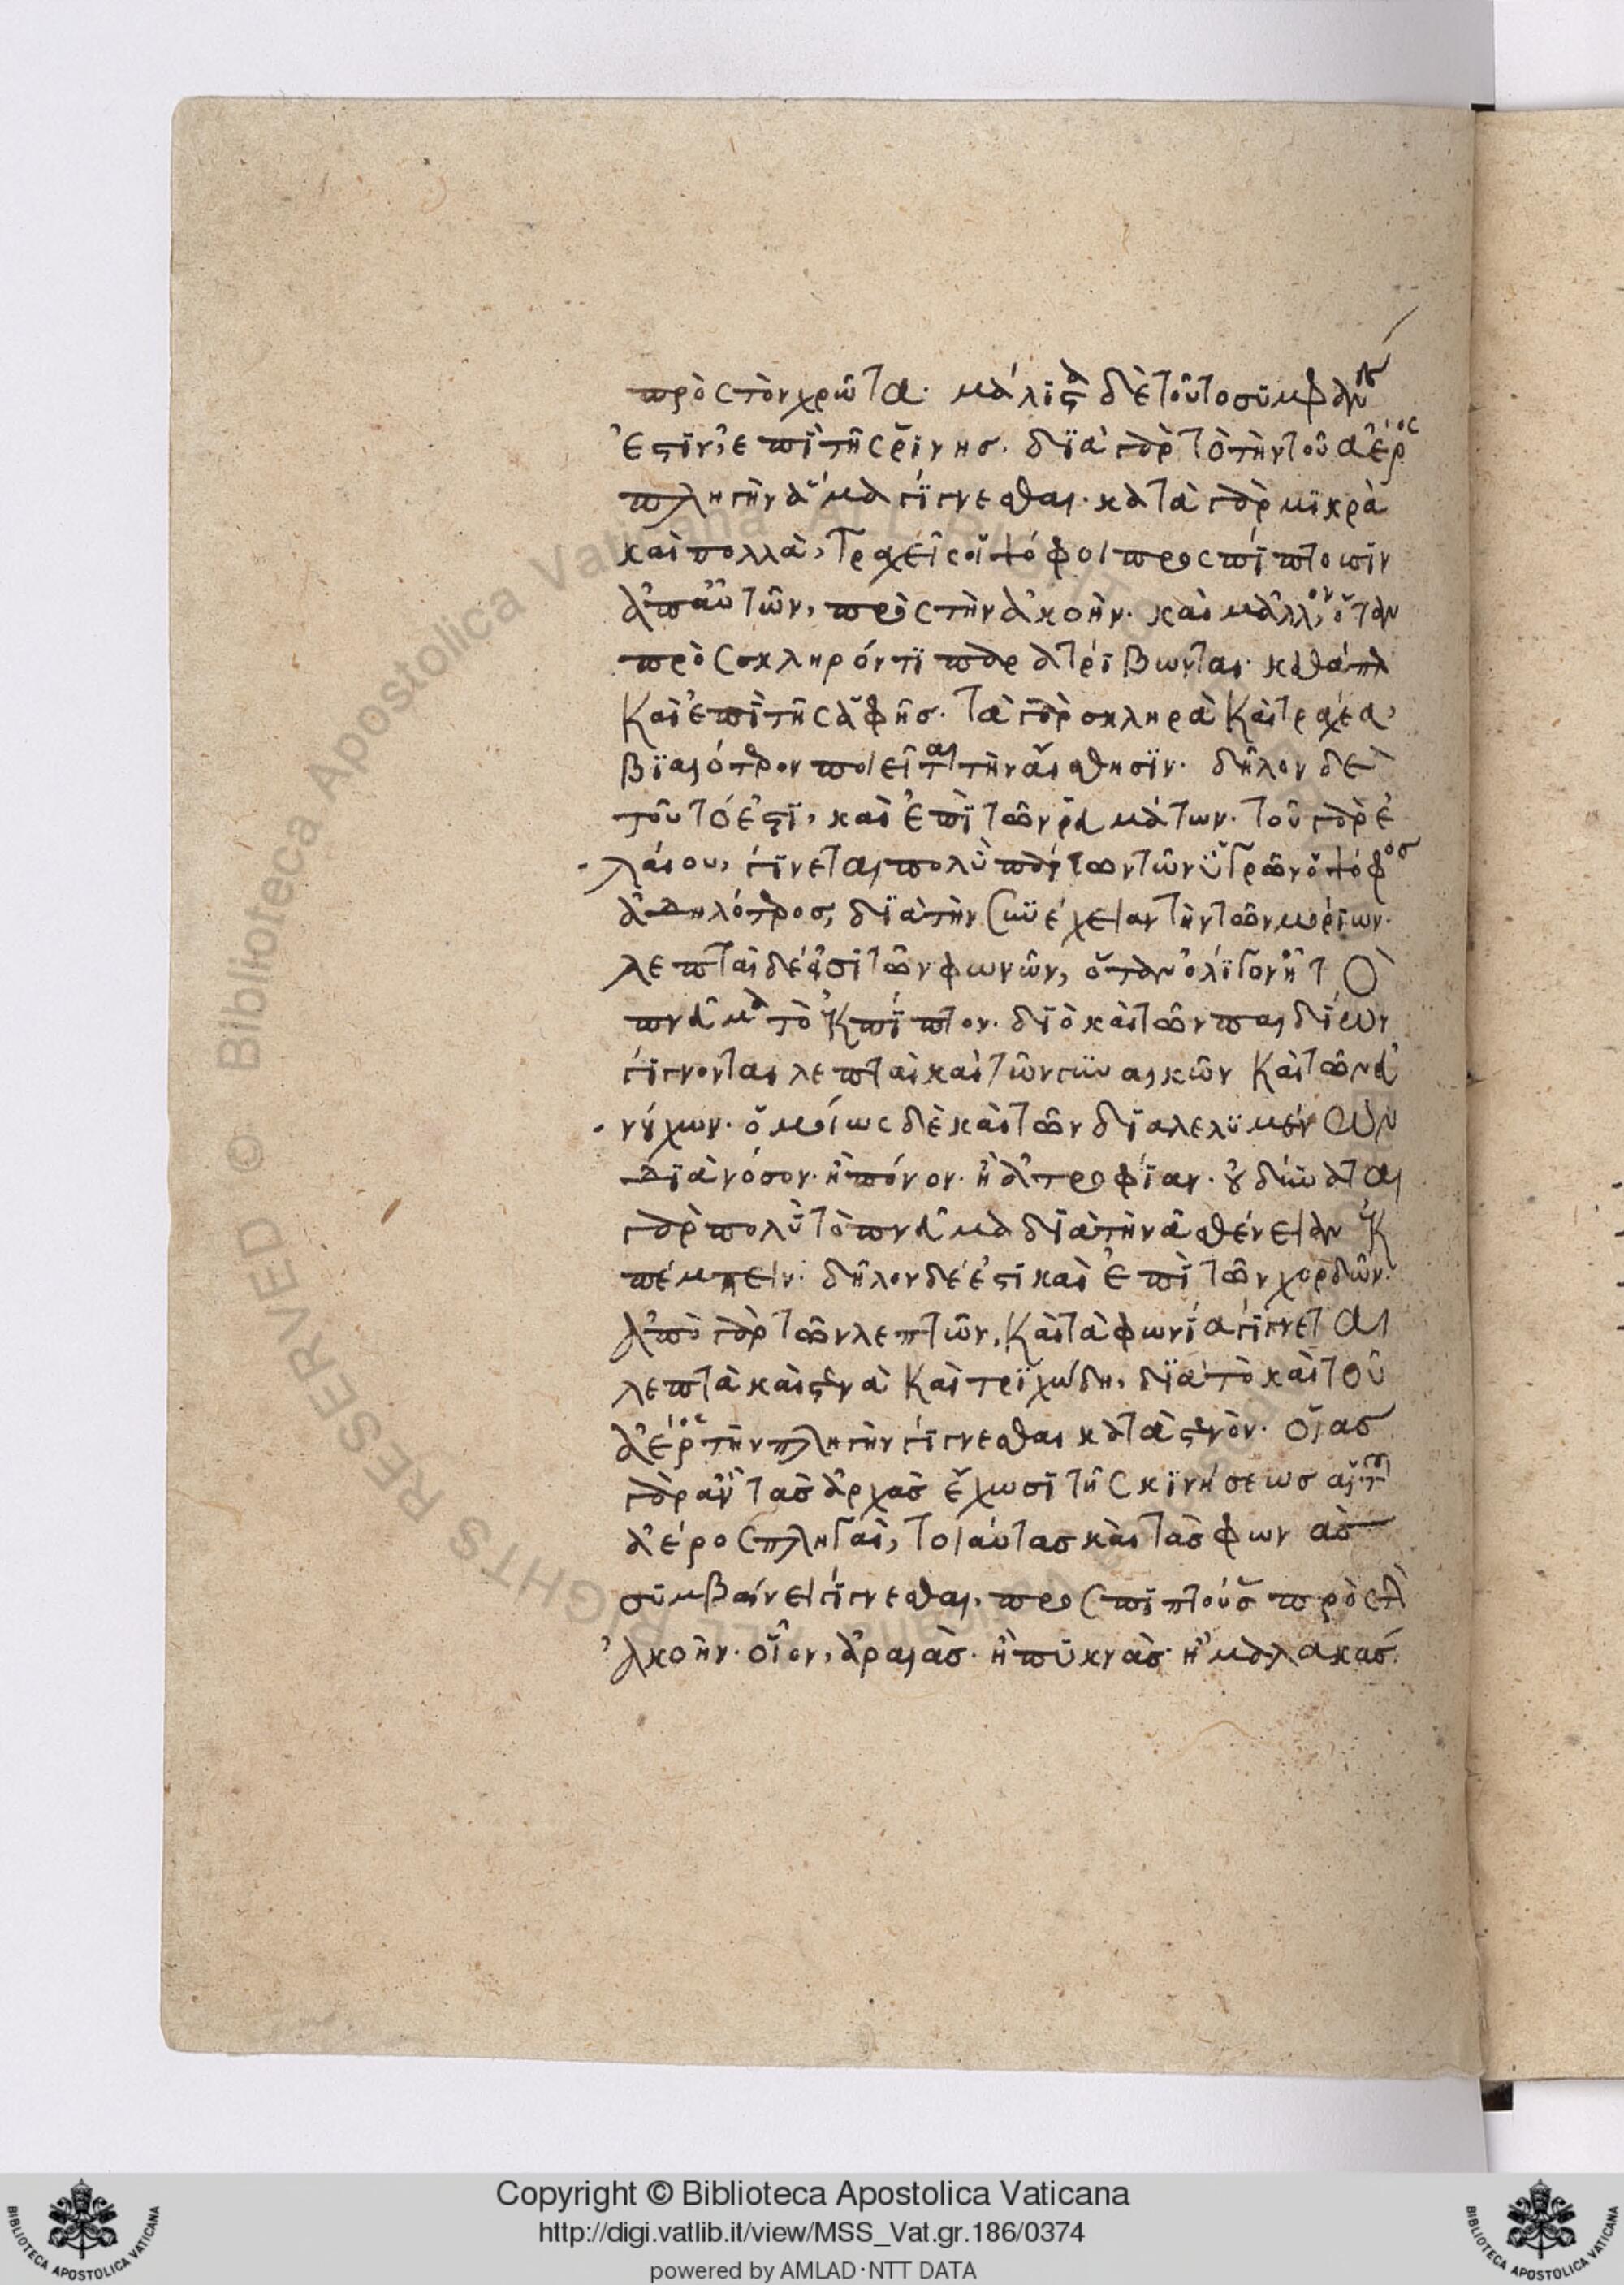 πρὸς τὸν χρῶτα· μάλιστα δὲ τοῦτο συμφαν
ἐστὶν, ἐπὶ τῆς ῥίνης. διὰ γὰρ τὸ τὴν τοῦ ἀέρος
πληγὴν ἅμα γίγνεσθαι· κατὰ γὰρ μικρὰ
καὶ πολλὰ, τραχεῖς οἱ ψόφοι προσπίπτουσιν
ἀπ' αὐτῶν, πρὸς τὴν ἀκοὴν. καὶ μᾶλλον, ὅταν
πρὸς σκληρόν τι παρατρίβωνται· καθάπερ
καὶ ἐπὶ τῆς ἁφῆς. τὰ γὰρ σκληρὰ καὶ τραχέα,
βιαιότερον ποιεῖται τὴν αἴσθησιν. δῆλον δὲ
τοῦτό ἐστι, καὶ ἐπὶ τῶν ῥευμάτων. τοῦ γὰρ ἐ
λαίου, γίνεται πολὺ πάντων τῶν ὑγρῶν ὁ ψόφος
ἀδηλότερος, διὰ τὴν συνέχειαν τὴν τῶν μορίων.
λεπταὶ δέ εἰσι τῶν φωνῶν, ὅταν ὀλίγον ᾖ τὸ
πνεῦμα τὸ ἐκπίπτον. διὸ καὶ τῶν παιδίων
γίγνονται λεπταὶ καὶ τῶν γυναικῶν καὶ τῶν εὐ
νούχων. ὁμοίως δὲ καὶ τῶν διαλελυμένων
διὰ νόσον. ἢ πόνον. ἢ ἀτροφίαν. οὐ δύναται
γὰρ πολὺ τὸ πνεῦμα διὰ τὴν ἀσθένειαν ἐκ
πέμπειν. δῆλον δέ ἐστι καὶ ἐπὶ τῶν χορδῶν.
ἀπὸ γὰρ τῶν λεπτῶν, καὶ τὰ φωνία γίγνεται
λεπτὰ καὶ στενὰ καὶ τριχώδη. διὰ τὸ καὶ τοῦ
ἀέρος τὴν πληγὴν γίγνεσθαι κατὰ στενόν. οἵας
γὰρ ἂν τὰς ἀρχὰς ἔχωσι τῆς κινήσεως αἱ τοῦ
ἀέρος πληγαὶ, τοιαύτας καὶ τὰς φωνὰς
συμβαίνει γίγνεσθαι, προσπιπτούσας πρὸς τὴν
ἀκοὴν. οἷον, ἀραιὰς. ἢ πυκνὰς. ἢ μαλακὰς.
Copyright © Biblioteca Apostolica Vaticana
http://digi.vatlib.it/view/MSS_Vat.gr.186/0374
powered by AMLAD·NTT DATA